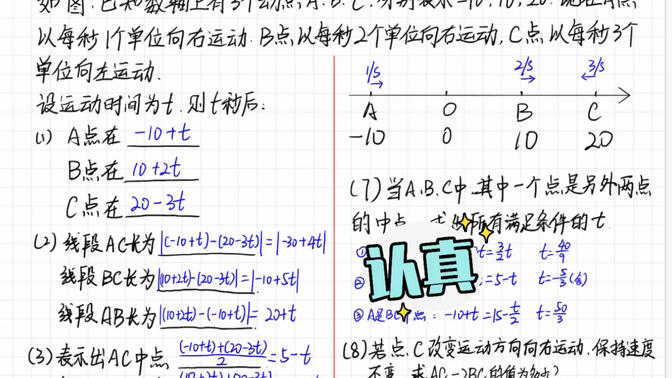 如图:已知数轴上有3个动点A.B.C.分别表示-10,10,20.
以每秒1个单位向右运动.B点以每秒2个单位向右运动,C点以每秒3个
单位向左运动.
设运动时间为t.则t秒后:
(1) A点在 -10+t
B点在 10+2t
C点在 20-3t
(2) 线段AC长为|(-10+t)-(20-3t)|=|-30+4t|
线段BC长为|(10+2t)-(20-3t)|=|-10+5t|
线段AB长为|(10+2t)-(-10+t)|=20+t
(3) 表示出AC中点 (-10+t)+(20-3t)/2 =5-t
1/s 2/s 3/s
A O B C
-10 0 10 20
(7) 当A.B.C中.其中一个点是另外两点
的中点. 所有满足条件的t.
① t=3/2t t=40/9
② =5-t t=-5/3(舍)
③ A是BC中点: -10+t=15-t/2 t=50/3
认真
(8) 若点C改变运动方向向右运动.保持速度
不变.求AC-2BC的值为多少?